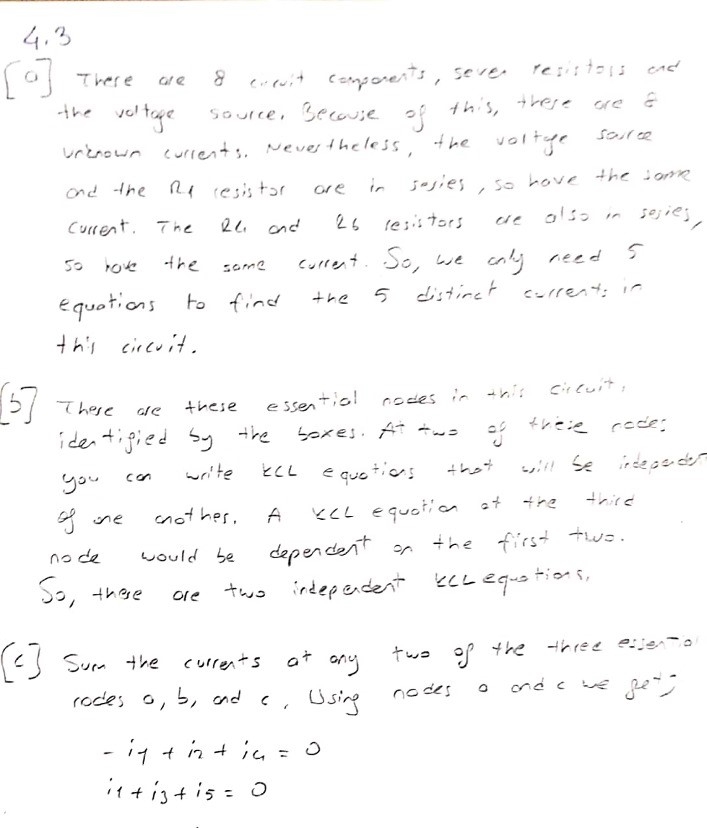 4.3
[a] There are 8 circuit components, seven resistors and
the voltage source. Because of this, there are 8
unknown currents. Nevertheless, the voltge source
and the R1 resistor are in series, so have the same
current. The R4 and R6 resistors are also in series,
so have the same current. So, we only need 5
equations to find the 5 distinct currents in
this circuit.
[b] There are these essential nodes in this circuit,
identified by the boxes. At two of these nodes
you can write KCL equations that will be independent
of one another. A KCL equation at the third
node would be dependent on the first two.
So, there are two independent KCL equations,
[c] Sum the currents at any two of the three essential
nodes a, b, and c. Using nodes a and c we get;
- i1 + i2 + i4 = 0
i1 + i3 + i5 = 0